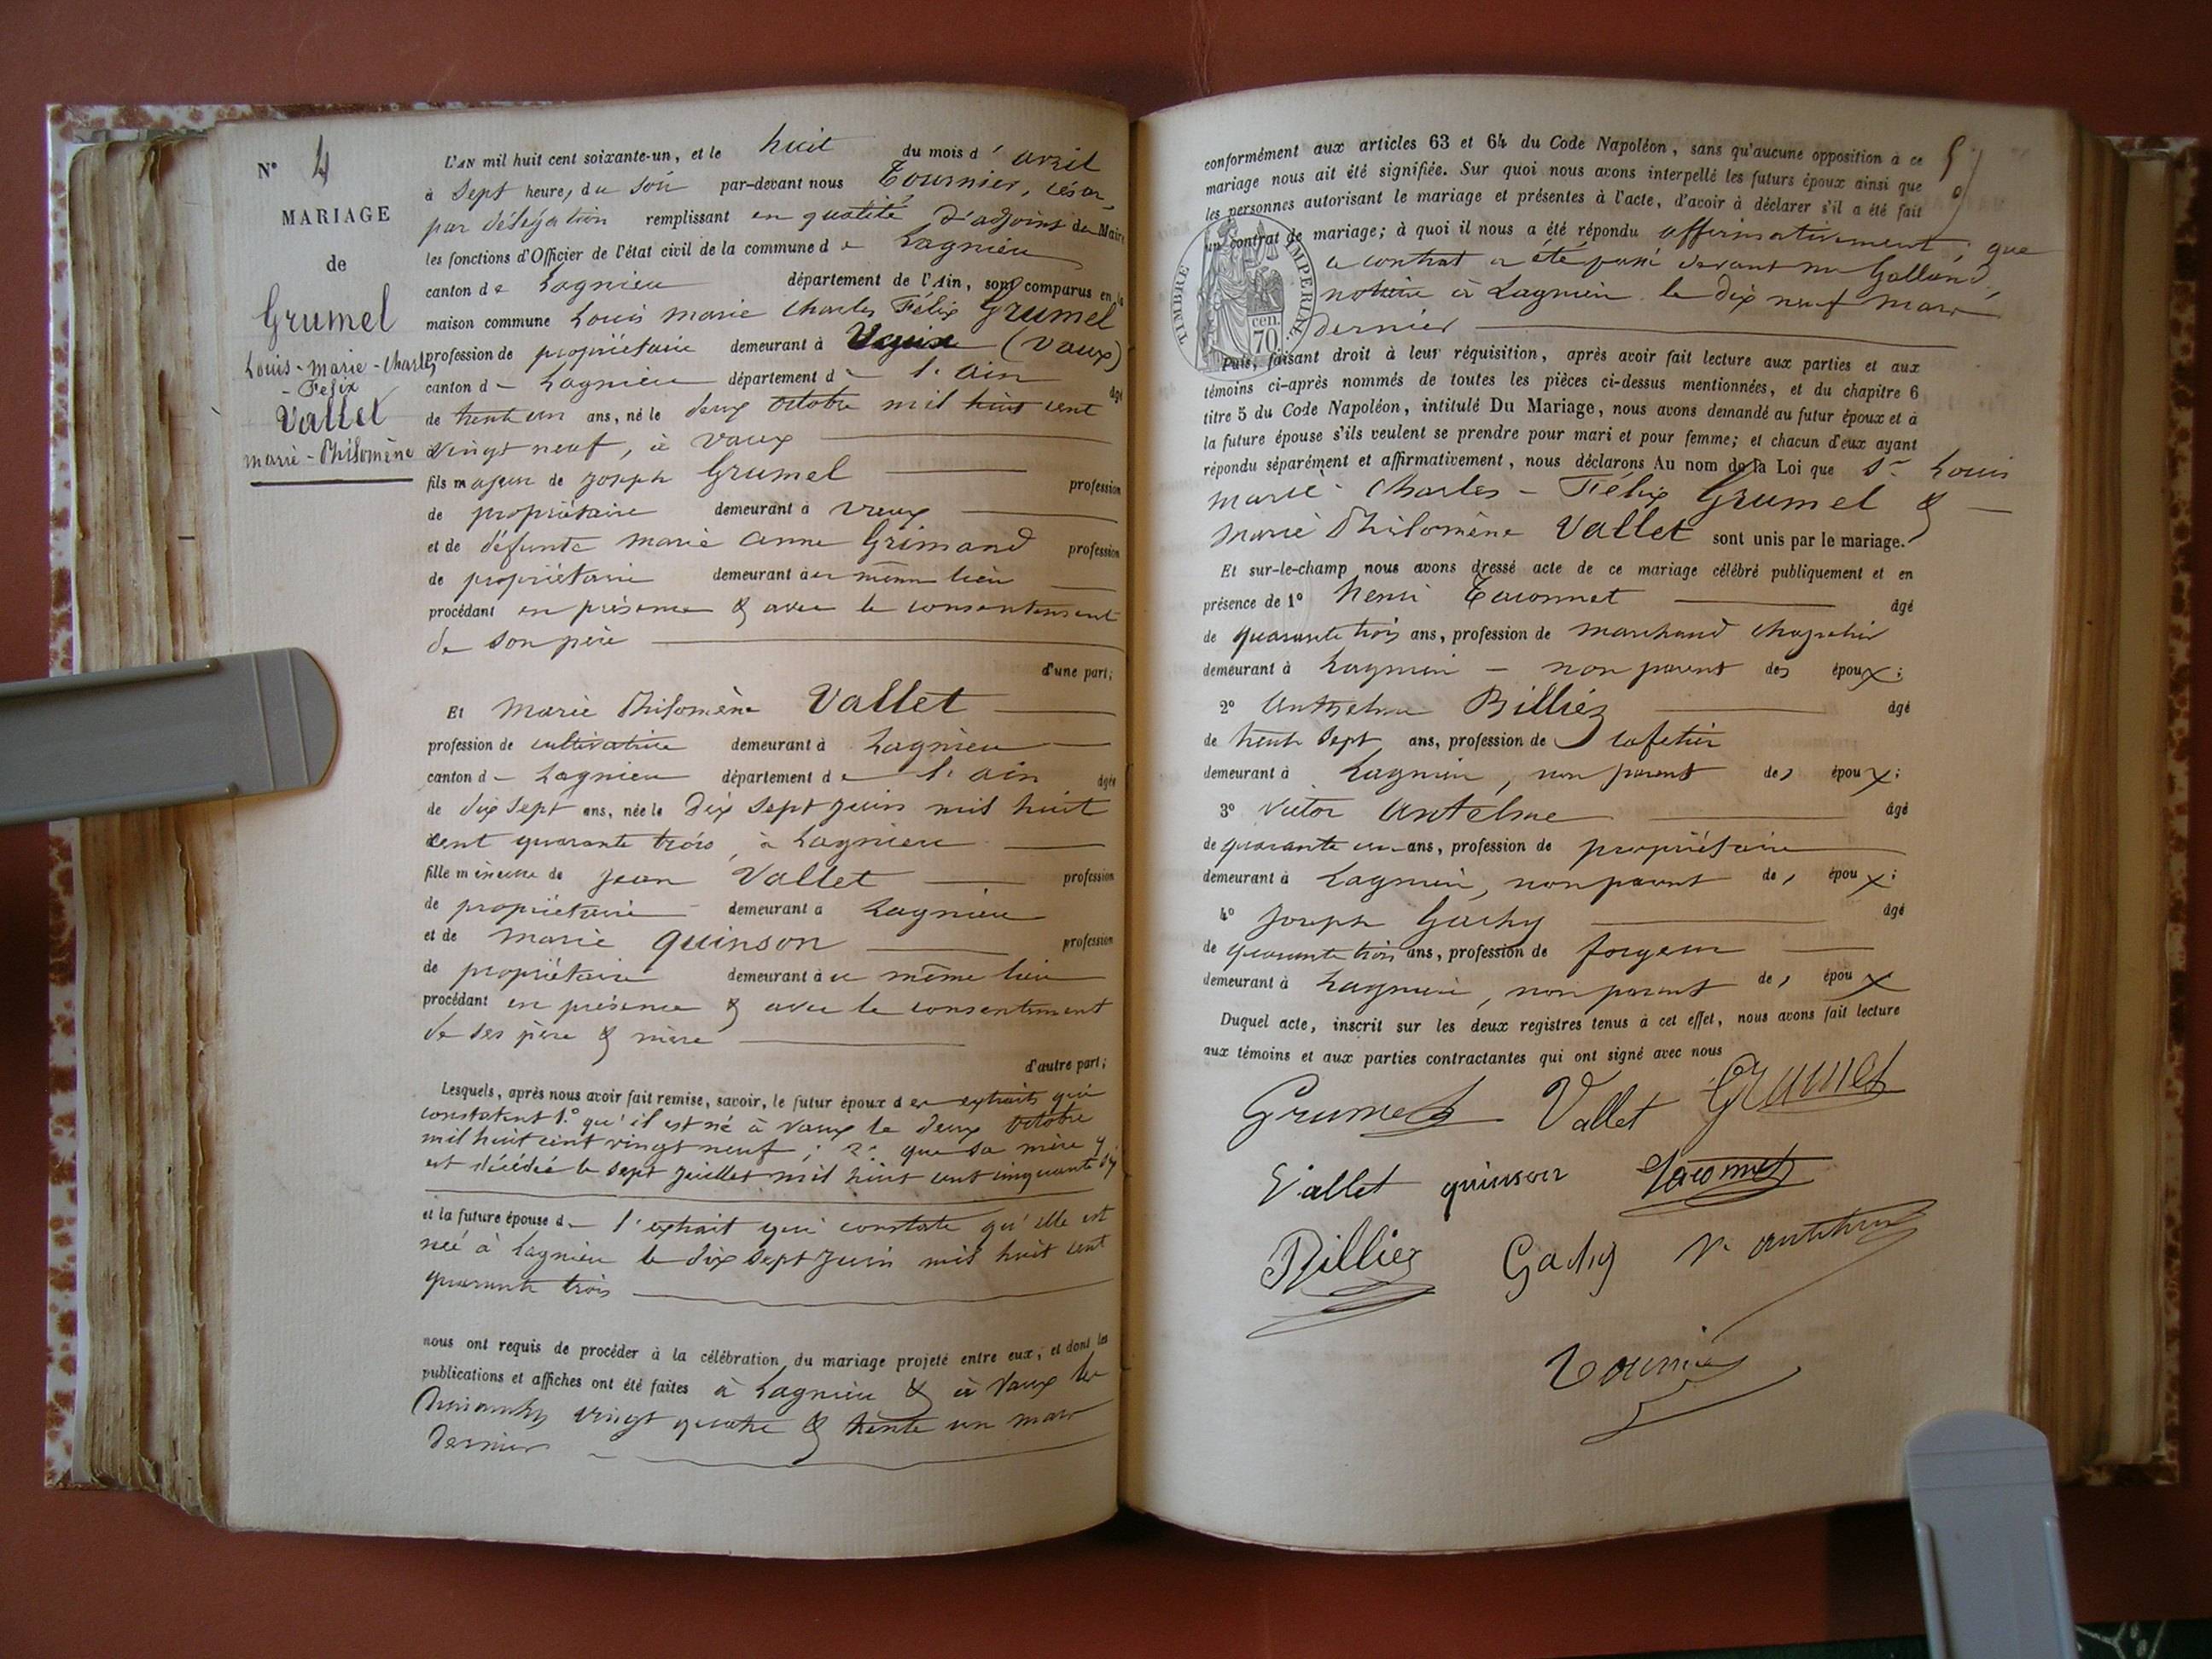 N° 4
MARIAGE
de
Grumel
Louis-Marie-Charles
-Felix
Vallet
marie-Philomène
L'AN mil huit cent soixante-un, et le huit du mois d'avril
à Sept heures du Soir par-devant nous Tournier, César,
par délégation remplissant en qualité d'adjoint de Maire
les fonctions d'Officier de l'état civil de la commune de Lagnieu
canton de Lagnieu département de l'Ain, sont comparus en la
maison commune Louis Marie Charles Félix Grumel
profession de propriétaire demeurant à (Vaux)
canton de Lagnieu département de l'ain âgé
de trente un ans, né le deux octobre mil huit cent
vingt neuf, à Vaux
fils majeur de Joseph Grumel profession
de propriétaire demeurant à Vaux
et de défunte marie anne Grimand profession
de propriétaire demeurant au même lieu
procédant en présence & avec le consentement
de son père
d'une part;
Et Marie Philomène Vallet
profession de cultivatrice demeurant à Lagnieu
canton de Lagnieu département de l'ain âgée
de dix sept ans, née le dix sept juin mil huit
cent quarante trois, à Lagnieu
fille mineure de Jean Vallet profession
de propriétaire demeurant à Lagnieu
et de Marie Quinson profession
de propriétaire demeurant à ce même lieu
procédant en présence & avec le consentement
de ses père & mère
d'autre part;
Lesquels, après nous avoir fait remise, savoir, le futur époux des extraits qui
constatent 1° qu'il est né à Vaux le deux octobre
mil huit cent vingt neuf; 2° que sa mère y
est décédée le sept juillet mil huit cent cinquante
et la future épouse de l'extrait qui constate qu'elle est
née à Lagnieu le dix sept juin mil huit cent
quarante trois
nous ont requis de procéder à la célébration du mariage projeté entre eux, et dont les
publications et affiches ont été faites à Lagnieu & à Vaux les
dimanches vingt quatre & trente un mars
dernier
conformément aux articles 63 et 64 du Code Napoléon, sans qu'aucune opposition à ce
mariage nous ait été signifiée. Sur quoi nous avons interpellé les futurs époux ainsi que
les personnes autorisant le mariage et présentes à l'acte, d'avoir à déclarer s'il a été fait
un contrat de mariage; à quoi il nous a été répondu affirmativement; que
ce contrat a été passé devant me Galland,
notaire à Lagnieu le dix neuf mars
dernier
TIMBRE IMPERIAL
70 cen.
Puis, faisant droit à leur réquisition, après avoir fait lecture aux parties et aux
témoins ci-après nommés de toutes les pièces ci-dessus mentionnées, et du chapitre 6
titre 5 du Code Napoléon, intitulé Du Mariage, nous avons demandé au futur époux et à
la future épouse s'ils veulent se prendre pour mari et pour femme; et chacun d'eux ayant
répondu séparément et affirmativement, nous déclarons Au nom de la Loi que Sr Louis
Marie-Charles-Félix Grumel &
Marie Philomène Vallet sont unis par le mariage.
Et sur-le-champ nous avons dressé acte de ce mariage célébré publiquement et en
présence de 1° Henri Taconnet âgé
de quarante trois ans, profession de marchand chapelier
demeurant à Lagnieu - non parent des époux;
2° Anthelme Billiez âgé
de trente sept ans, profession de cafetier
demeurant à Lagnieu, non parent des époux;
3° Victor Antelme âgé
de quarante un ans, profession de propriétaire
demeurant à Lagnieu, non parent des époux;
4° Joseph Gachy âgé
de quarante trois ans, profession de forgeur
demeurant à Lagnieu, non parent des époux
Duquel acte, inscrit sur les deux registres tenus à cet effet, nous avons fait lecture
aux témoins et aux parties contractantes qui ont signé avec nous
Grumel Vallet Grumel
Vallet quinson Taconnet
Billiez Gachy V. antelme
Tournier